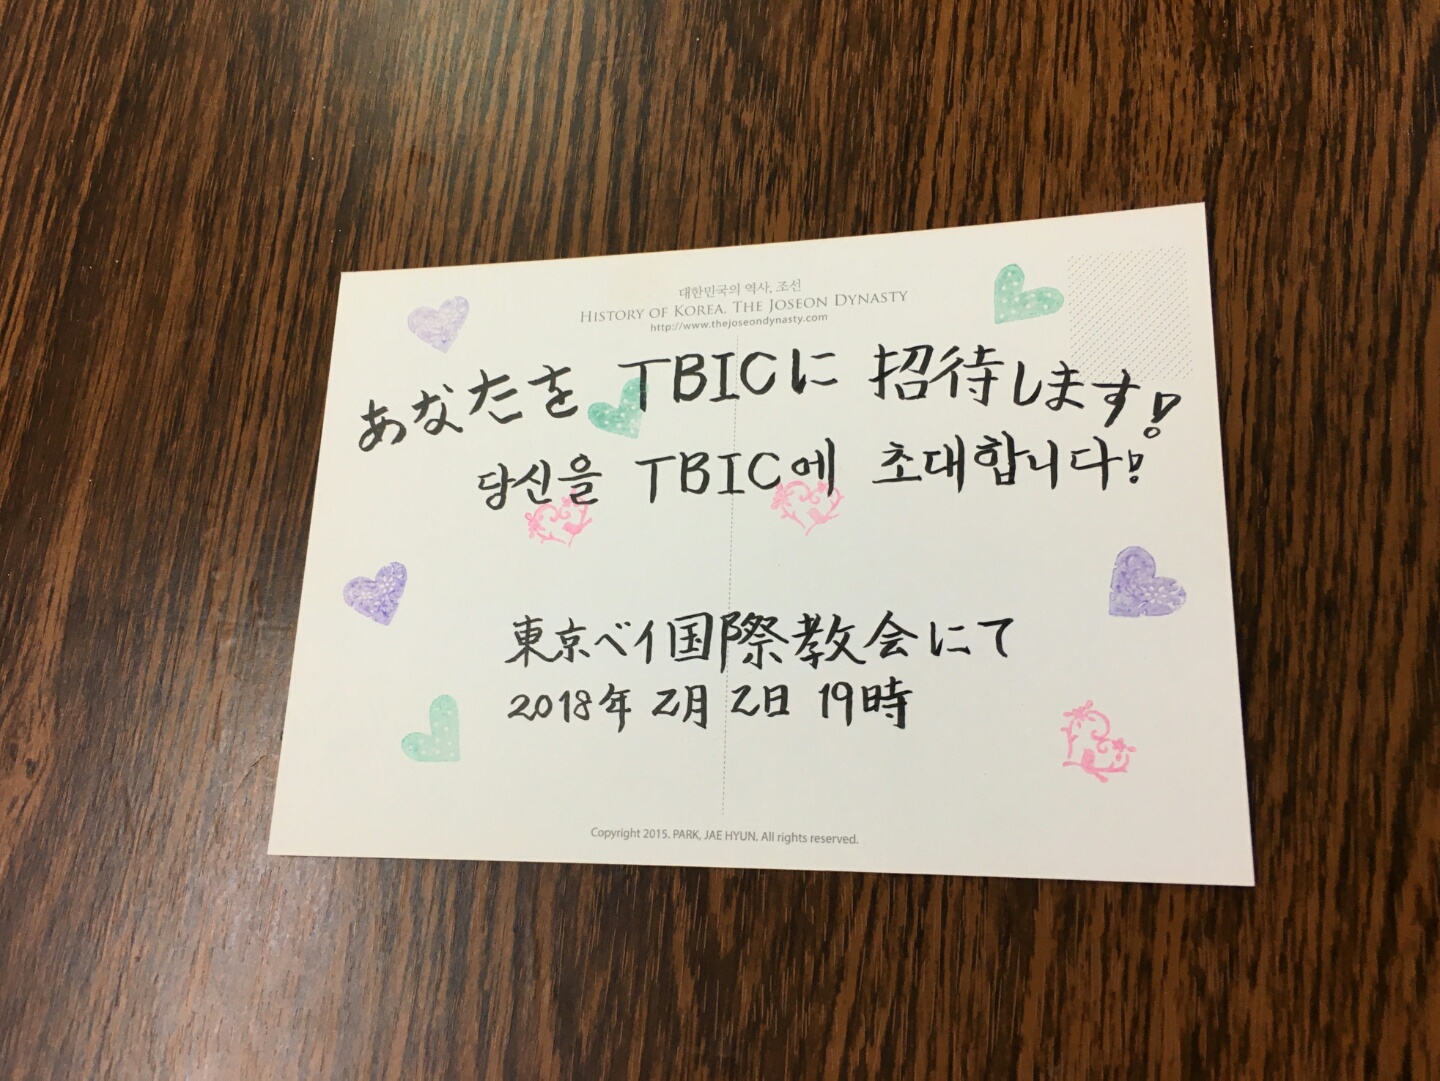 대한민국의 역사, 조선
HISTORY OF KOREA. THE JOSEON DYNASTY
http://www.thejoseondynasty.com
あなたを TBICに 招待します!
당신을 TBIC에 초대합니다!
東京ベイ国際教会にて
2018年 2月 2日 19時
Copyright 2015. PARK, JAE HYUN. All rights reserved.